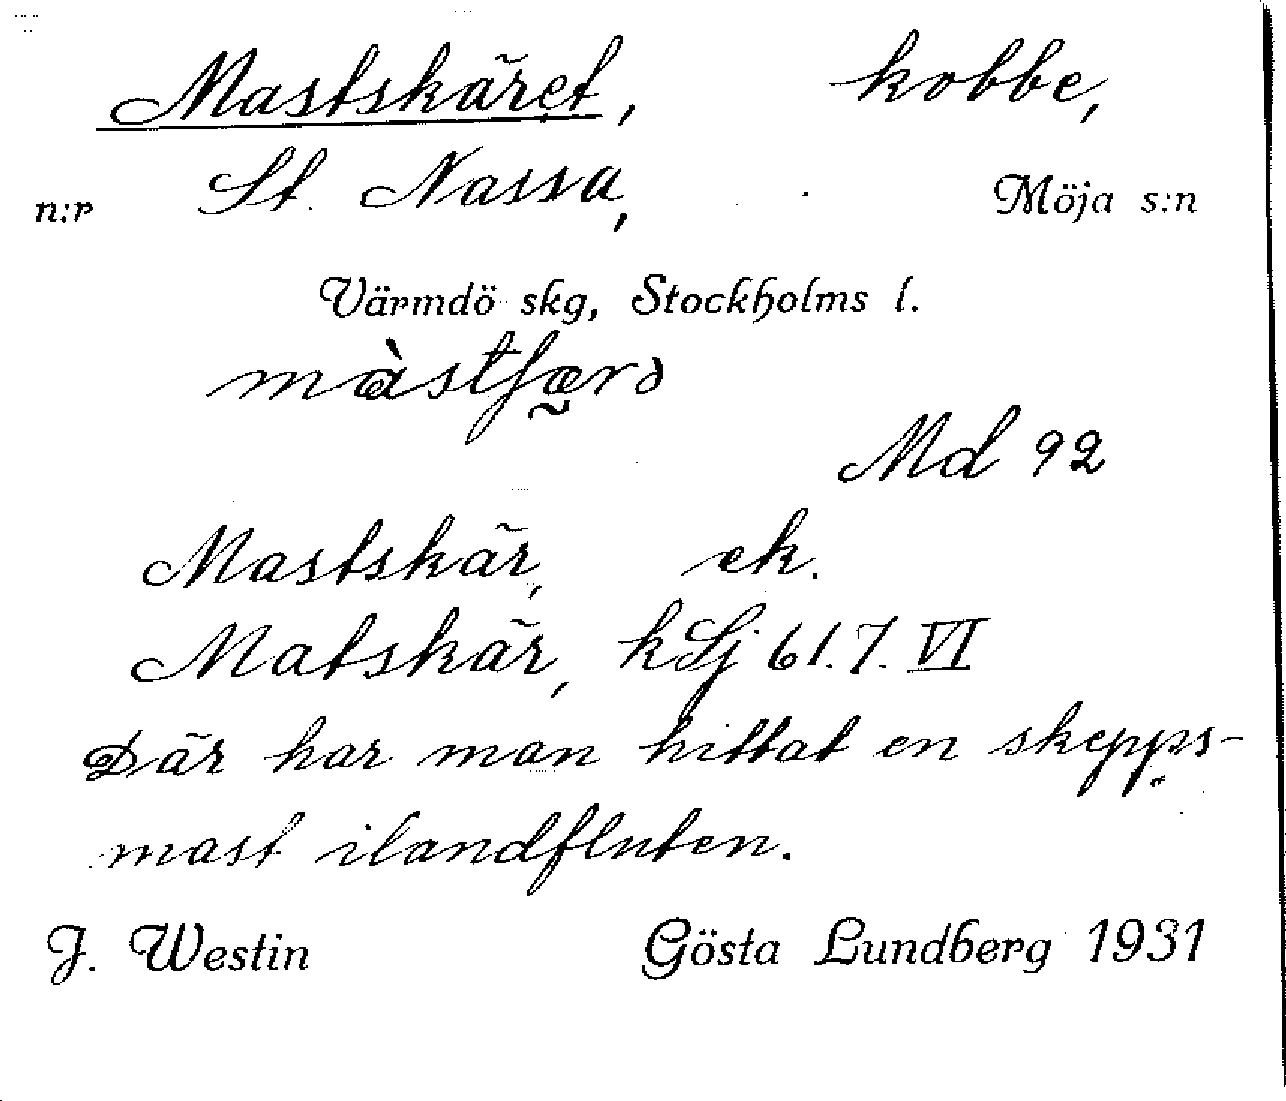 Mastskäret, kobbe,
n:r St. Nassa, Möja s:n
Värmdö skg, Stockholms l.
màstʃærə
Md 92
Mastskär, ek.
Matskär, kSj 61.7.VI
Där har man hittat en skepps-
mast ilandfluten.
J. Westin Gösta Lundberg 1931